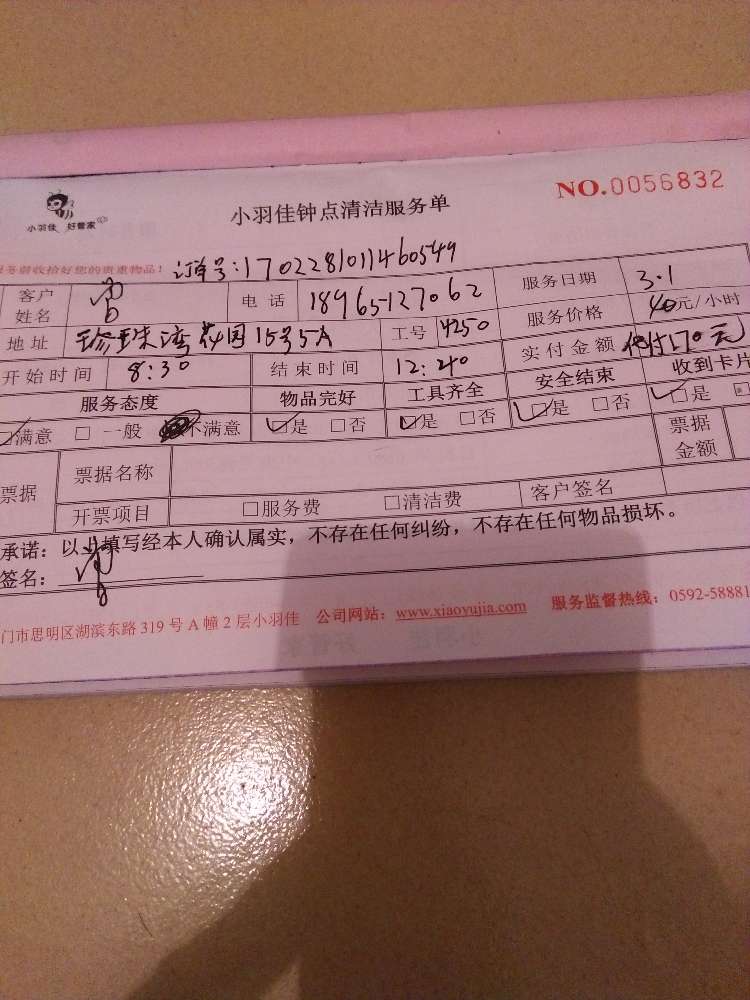 小羽佳 好管家
小羽佳钟点清洁服务单
NO.0056832
服务前收拾好您的贵重物品！ 订单号:17022810114605 49
客户姓名 电话 18965127062 服务日期 3.1
地址 珍珠湾花园15号5A 工号 4250 服务价格 40元/小时
开始时间 8:30 结束时间 12:40 实付金额 代付170元
服务态度 物品完好 工具齐全 安全结束 收到卡片
满意 □ 一般 不满意 □是 □否 □是 □否 □是 □否 □是
票据 票据名称 票据金额
开票项目 □服务费 □清洁费 客户签名
承诺：以上填写经本人确认属实，不存在任何纠纷，不存在任何物品损坏。
签名：
门市思明区湖滨东路 319 号 A 幢 2 层小羽佳 公司网站：www.xiaoyujia.com 服务监督热线：0592-58881